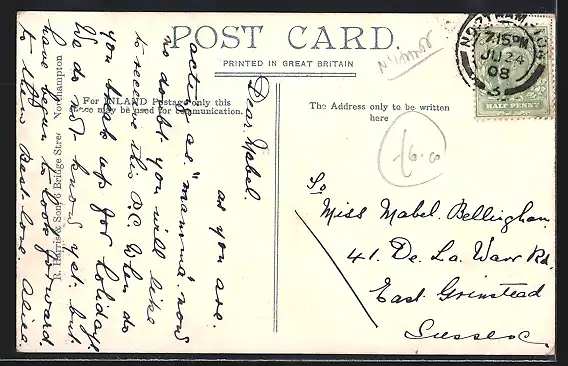 POST CARD.
PRINTED IN GREAT BRITAIN
For INLAND Postage only this
space may be used for communication.
The Address only to be written
here
R. Harris & Son, 6 Bridge Street Northampton
NORTHAMPTON
7.15 PM
JU 24
08
3
HALF PENNY
6.0
Dear Mabel.
as you are.
acting as "mamma" now
no doubt you will like
to receive this P.C. When do
you break up for holidays.
We do not know yet. but
have begun to look forward.
to them Best love Alice
To
Miss Mabel. Bellingham
41. De. La. Warr Rd.
East. Grinstead
Sussex.